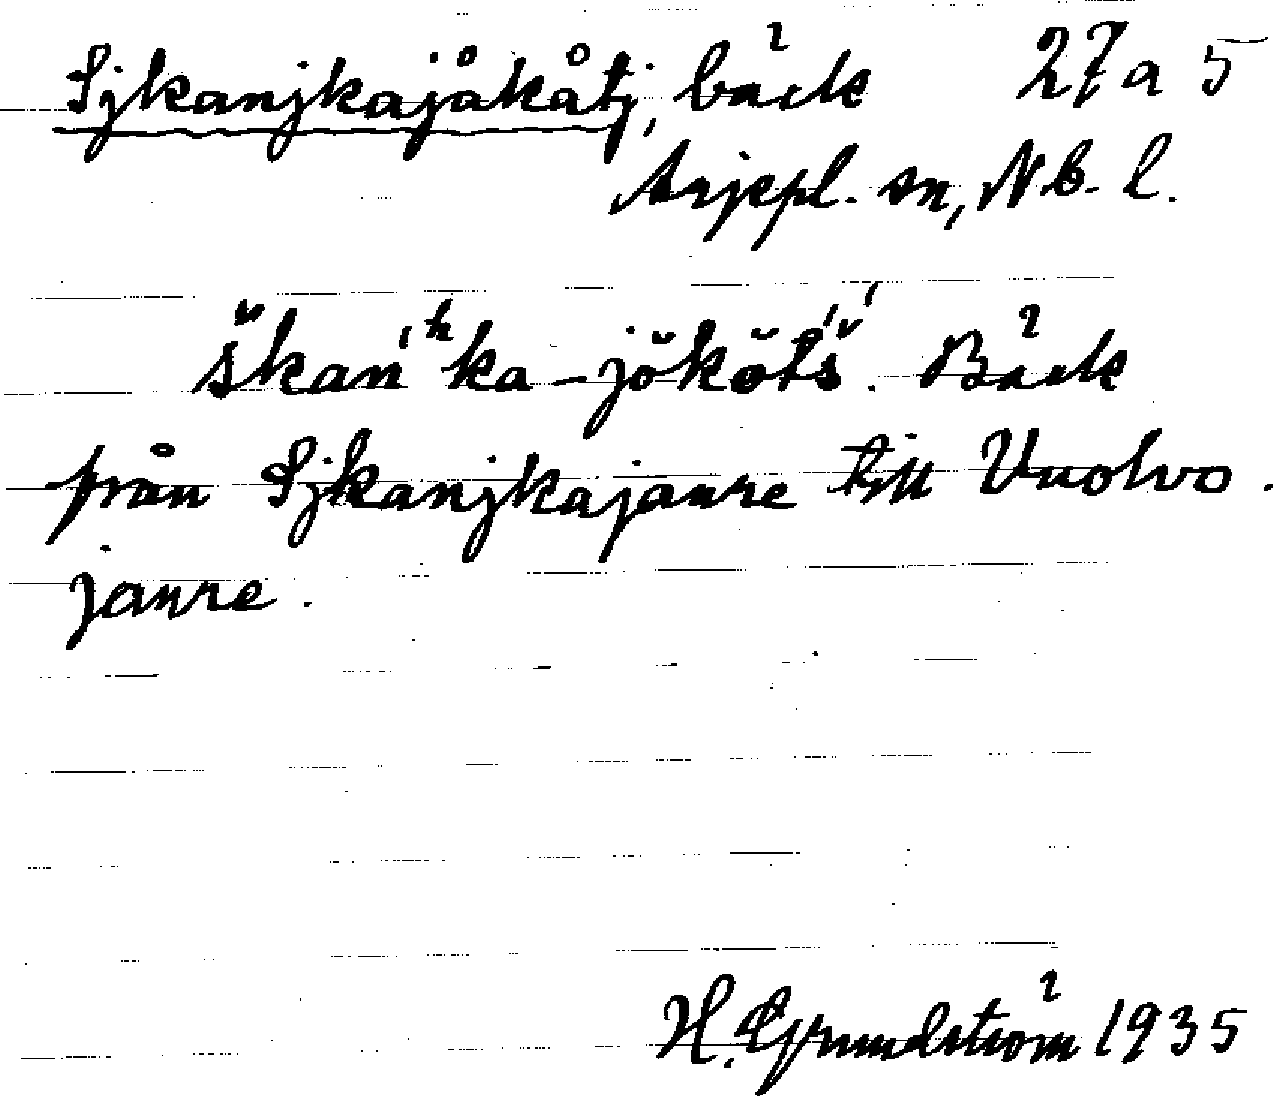 Sjkanjkajåkåtj, bäck 27 a 5
Arjepl. sn, Nb. l.
škań ʰka-jŏkŏt́š́. Bäck
från Sjkanjkajaure till Vuolvo-
jaure.
H. Grundström 1935